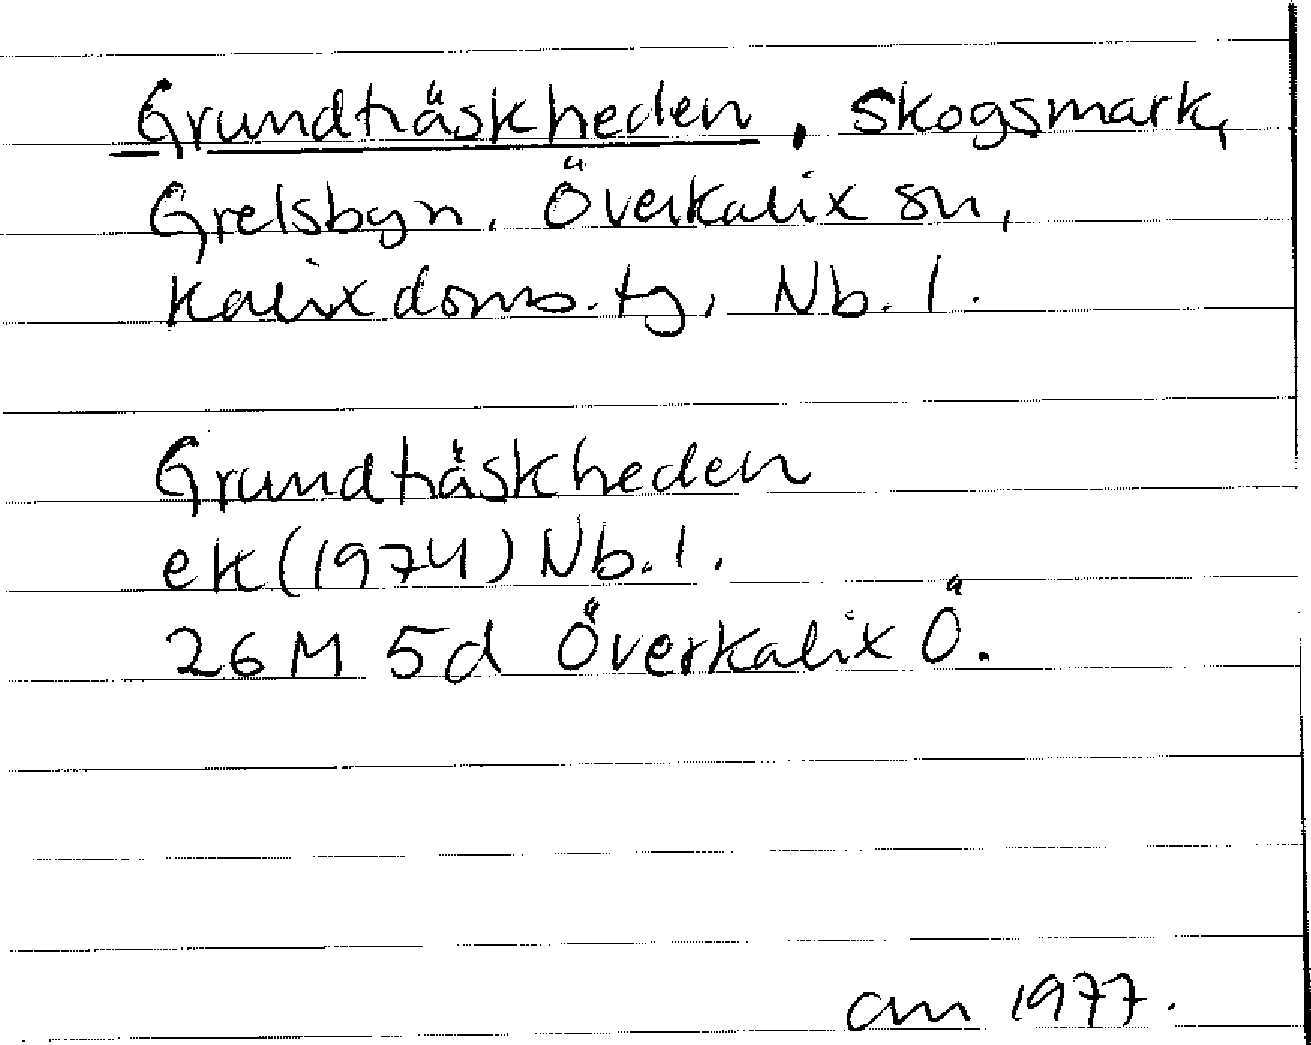 Grundträskheden, skogsmark,
Grelsbyn, Överkalix sn,
Kalix doms. tg, Nb. l.
Grundträskheden
ek (1974) Nb. l.
26 M 5d Överkalix Ö.
am 1977.